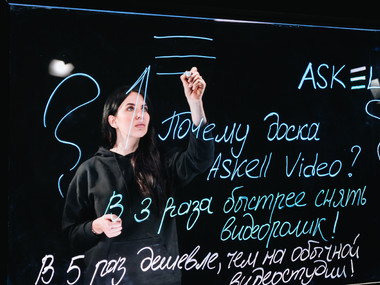 ASKELL
Почему доска
Askell Video?
В 3 раза быстрее снять
видеоролик!
В 5 раз дешевле, чем на обычной
видеостудии!